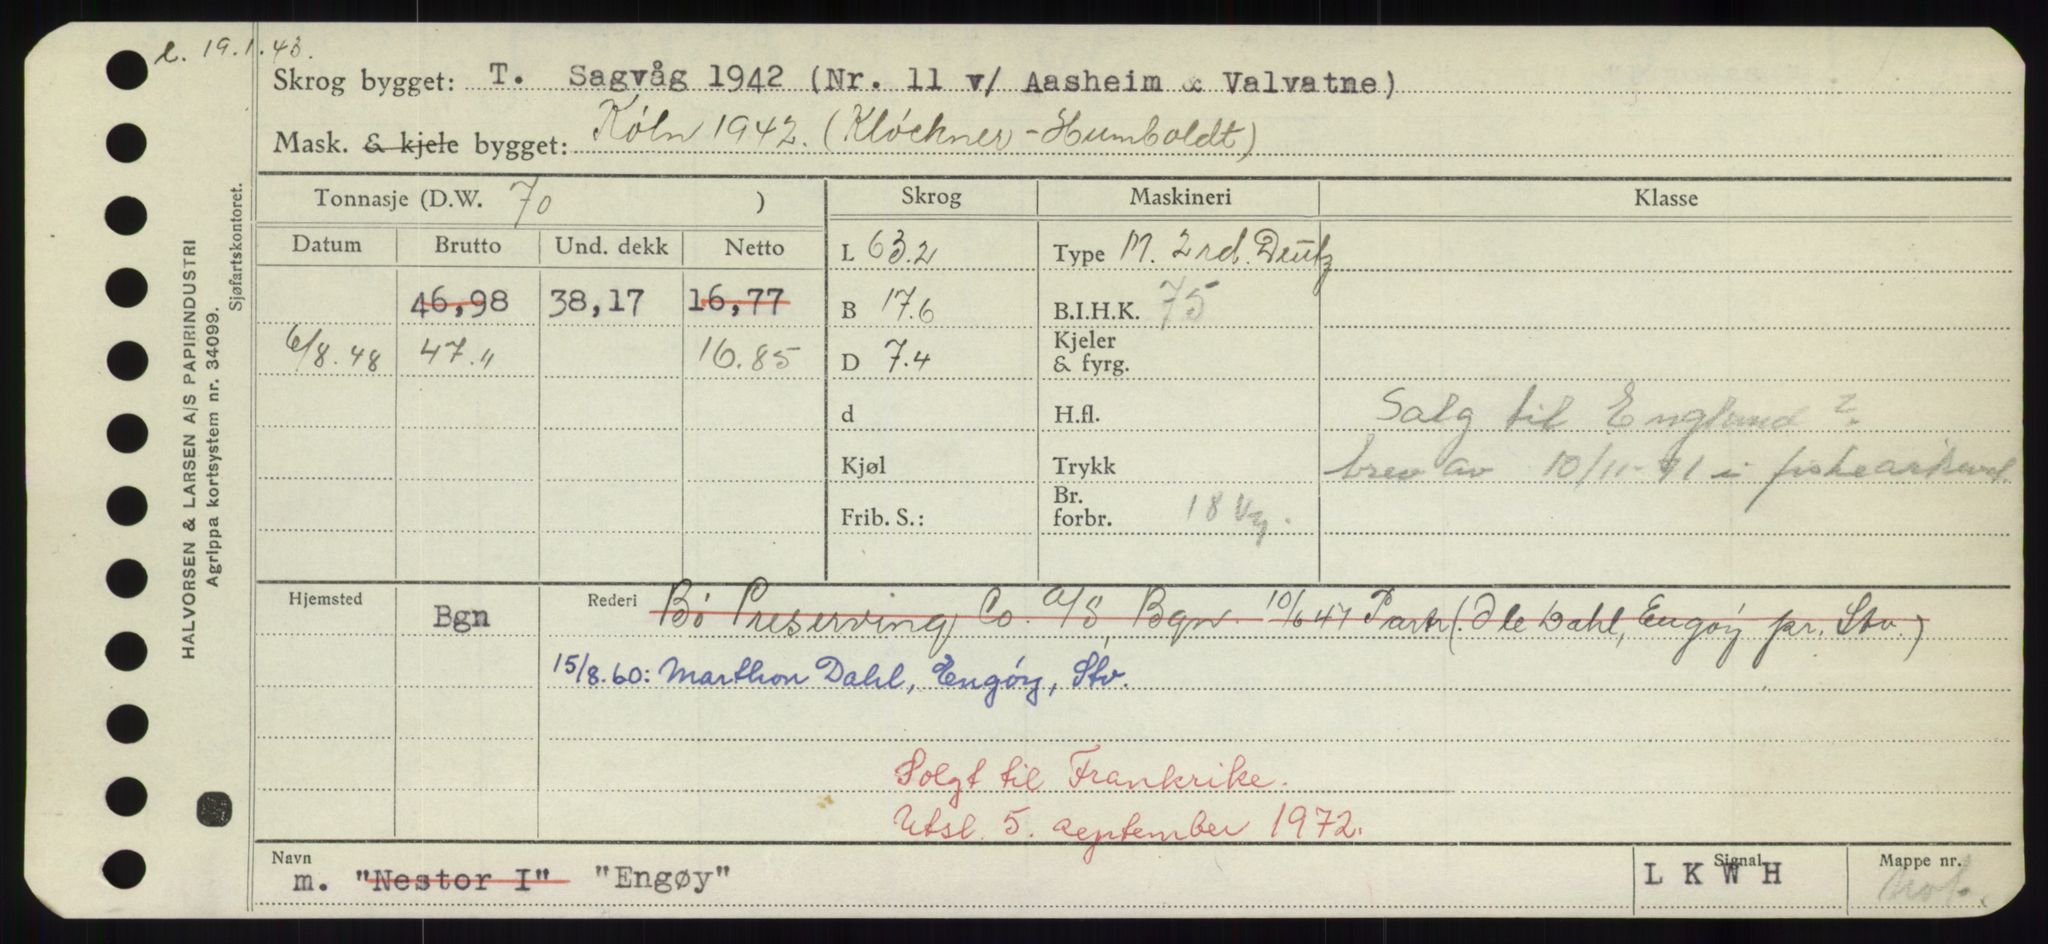 l. 19.1.43.
Skrog bygget: T. Sagvåg 1942 (Nr. 11 v/ Aasheim & Valvatne)
Mask. & kjele bygget: Köln 1942. (Klöckner-Humboldt)
Tonnasje (D.W. 70 ) Skrog Maskineri Klasse
Datum Brutto Und. dekk Netto L 63.2 Type M. 2 rd. Deutz
46,98 38,17 16,77 B 17.6 B.I.H.K. 75
6/8.48 47.„ 16.85 D 7.4 Kjeler & fyrg.
d H.fl. Salg til England?
Kjøl Trykk brev av 10/11-71 i
Frib. S.: Br. forbr. 18
Hjemsted Bgn Rederi Bö Preserving Co. A/S, Bgn. 10/6 47 Partr. (Ole Dahl, Engøy pr. Stv.)
15/8.60: Marthon Dahl, Engøy, Stv.
Solgt til Frankrike.
Utsl. 5. september 1972.
Navn Signal Mappe nr.
m. "Nestor I" "Engøy" L K W H
HALVORSEN & LARSEN A/S PAPIRINDUSTRI
Agrippa kortsystem nr. 34099.
Sjøfartskontoret.